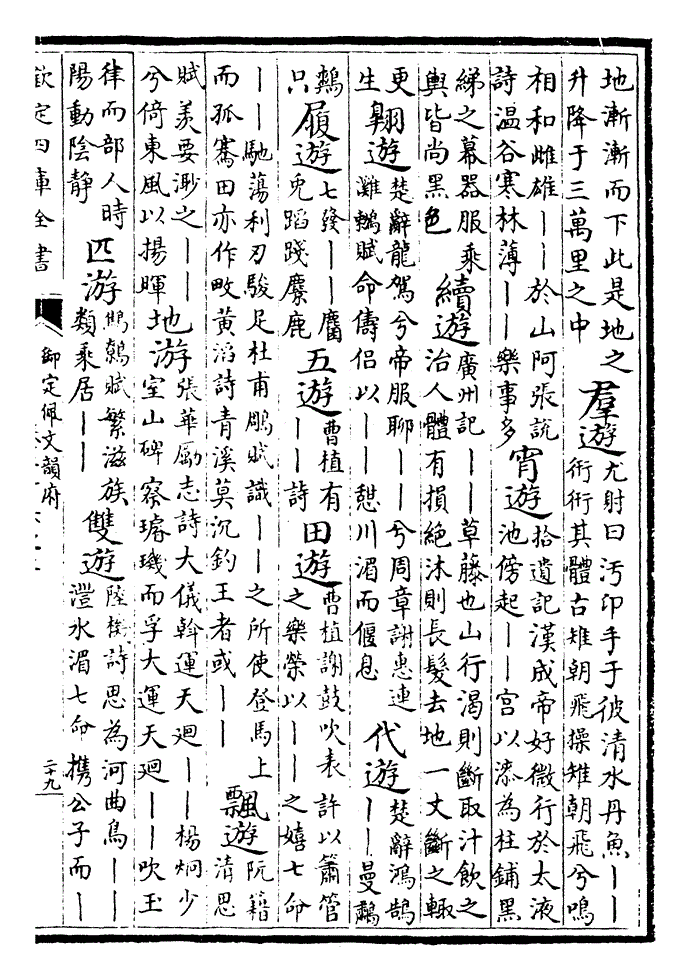 地漸漸而下此是地之
升降于三萬里之中
羣遊
尤射曰汚卬手于彼清水丹魚——
衎衎其體古雉朝飛操雉朝飛兮鳴
相和雌雄——於山阿張說
詩溫谷寒林薄——樂事多
宵遊
拾遺記漢成帝好微行於太液
池傍起——宮以漆為柱鋪黑
綈之幕器服乘
輿皆尚黑色
續遊
廣州記——草藤也山行渴則斷取汁飲之
治人體有損絕沐則長髮去地一丈斷之輙
更
生
翱遊
楚辭龍駕兮帝服聊——兮周章謝惠連
鶒賦命儔侶以——憇川湄而偃息
代遊
楚辭鴻鵠
——曼鷫
鷞
只
履遊
七發——麕
兔蹈踐麋鹿
五遊
曹植有
——詩
田遊
曹植謝鼓吹表許以簫管
之樂榮以——之嬉七命
——馳蕩利刃駿足杜甫鵰賦識——之所使登馬上
而孤騫田亦作畋黃滔詩青溪莫沉釣王者或——
飄遊
阮籍
清思
賦羨要渺之——
兮倚東風以揚暉
地游
張華勵志詩大儀斡運天廻——楊炯少
室山碑察璿璣而孚大運天廻——吹玉
律而部人時
陽動陰靜
匹游
鷦鷯賦繁滋族
類乘居——
雙遊
陸機詩思為河曲鳥——
灃水湄七命攜公子而——
欽定四庫全書
御定佩文韻府
二十九